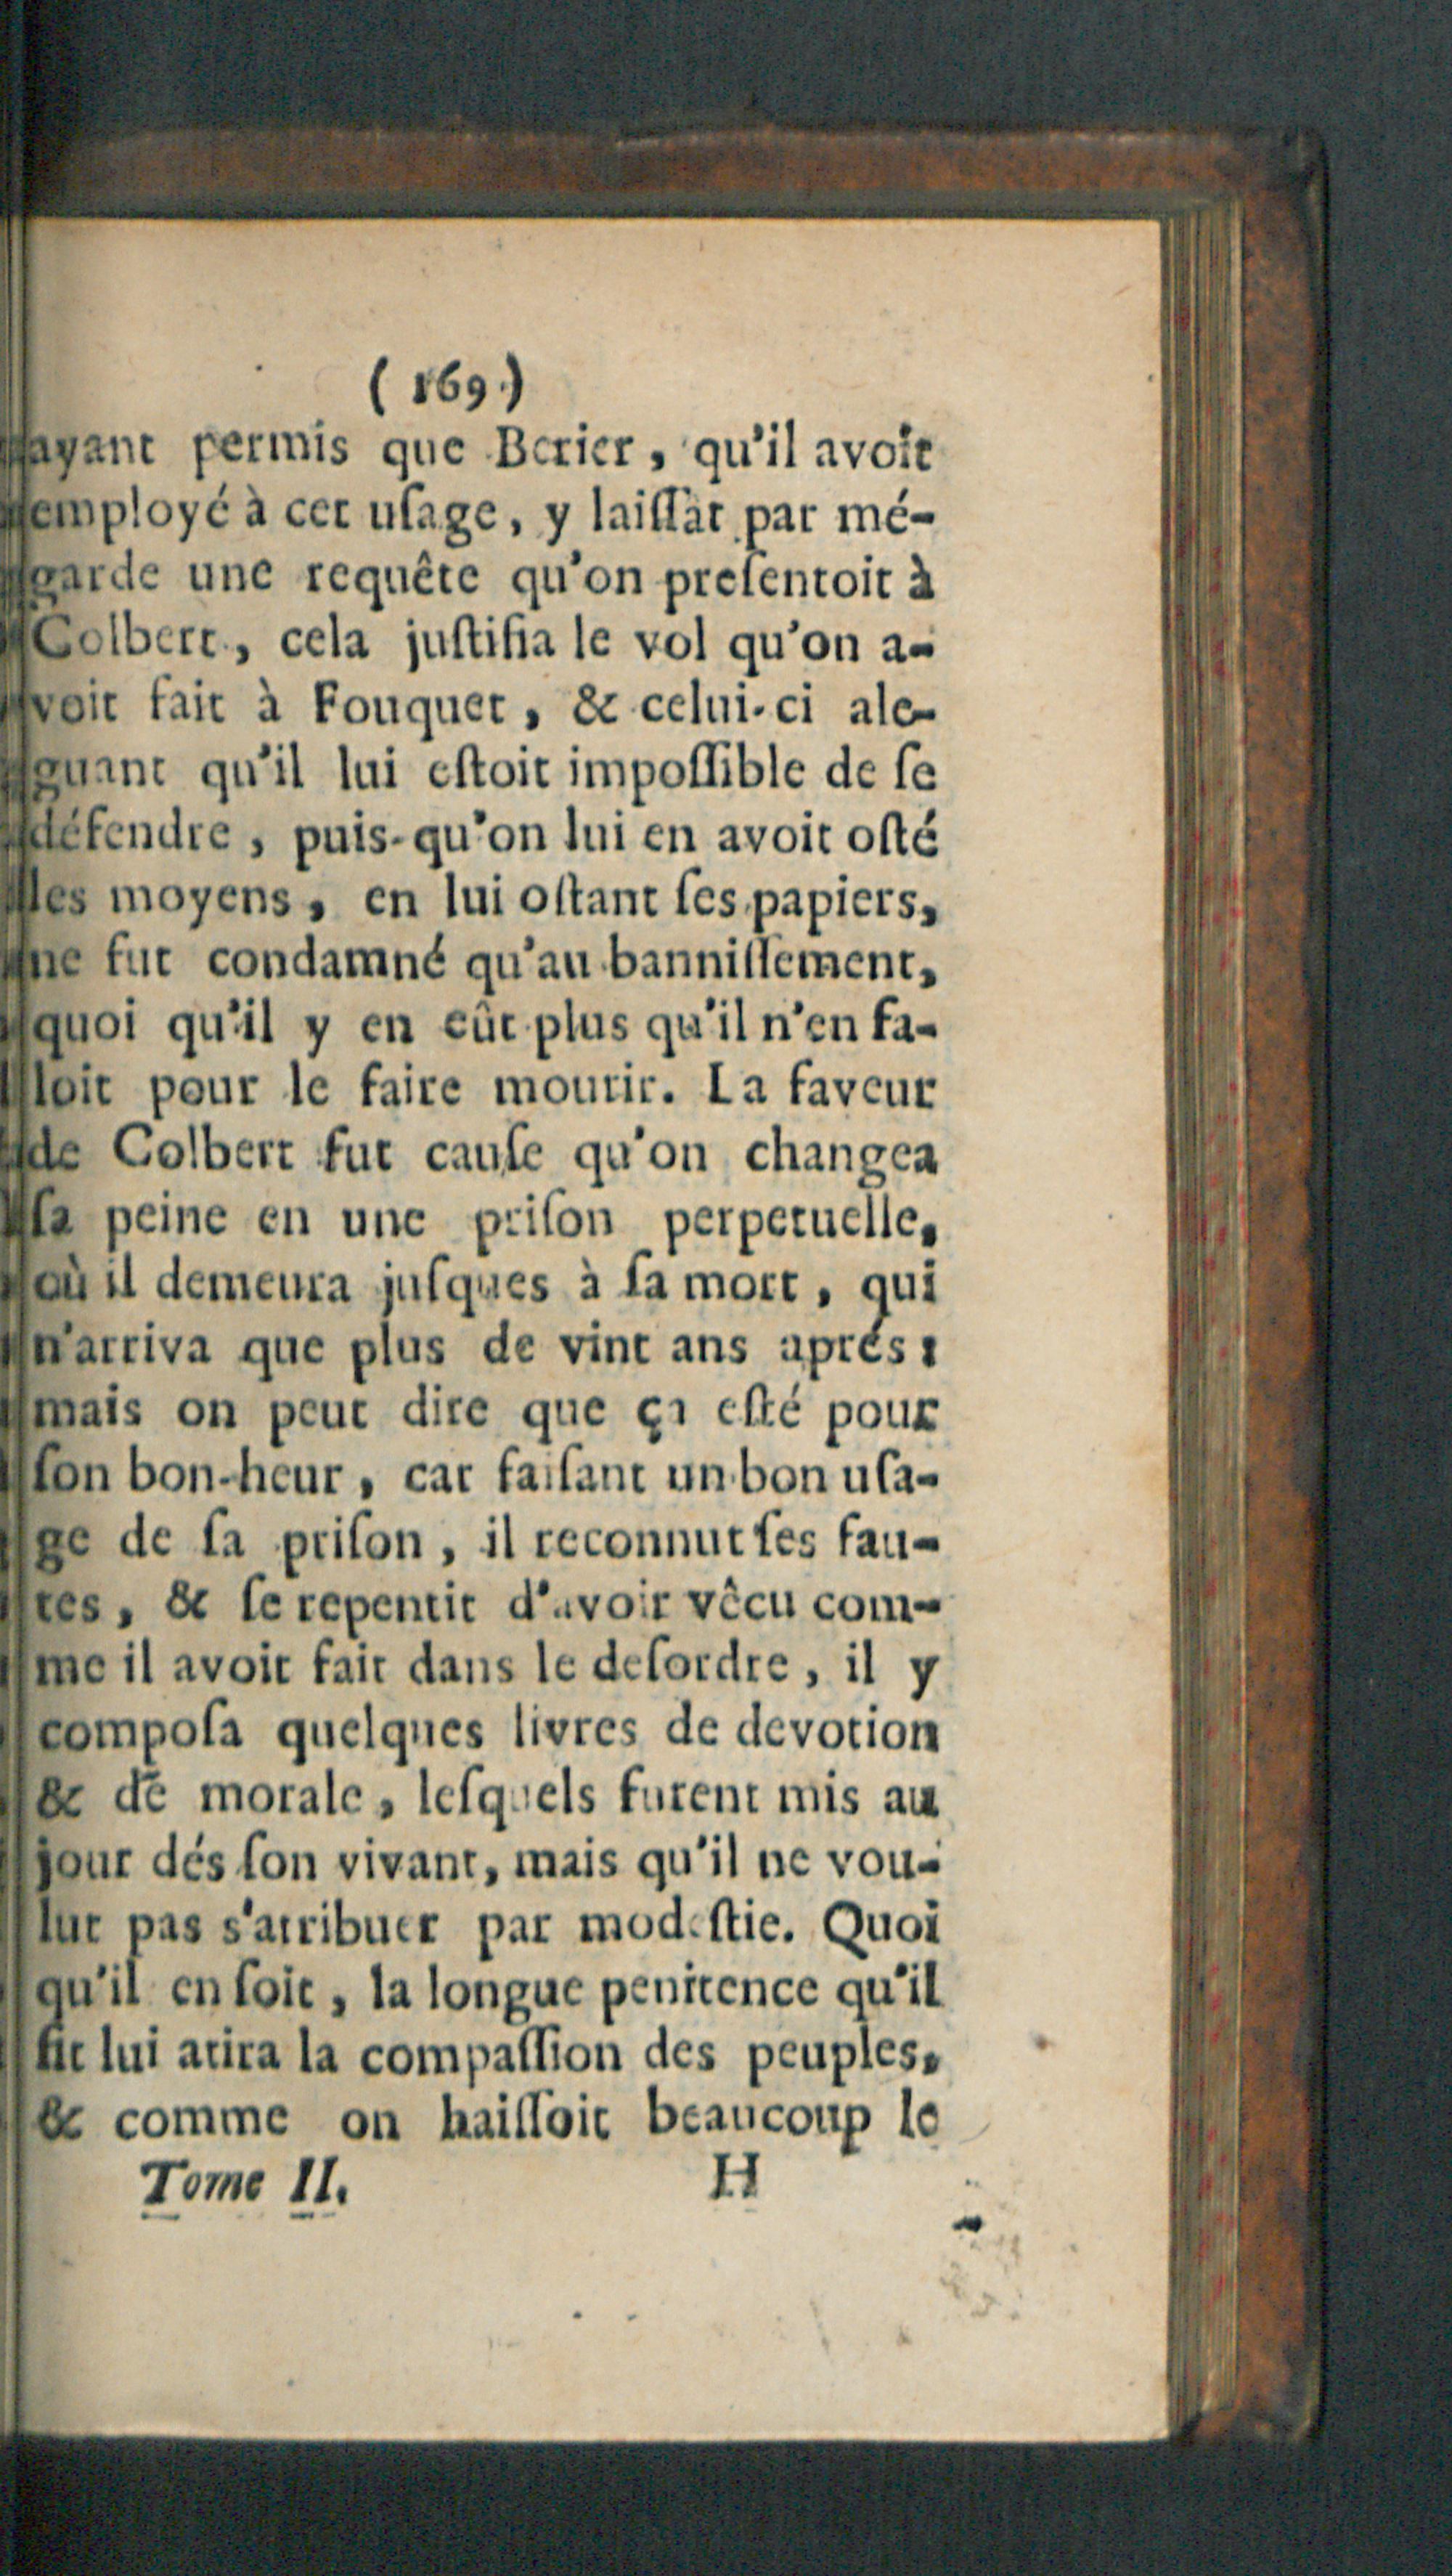 (169)
ayant permis que Berier, qu'il avoit
employé à cet uſage, y laiſſât par mé-
garde une requête qu'on preſentoit à
Colbert, cela juſtifia le vol qu'on a-
voit fait à Fouquet, & celui-ci ale-
guant qu'il lui eſtoit impoſſible de ſe
défendre, puis-qu'on lui en avoit oſté
les moyens, en lui oſtant ſes papiers,
ne fut condamné qu'au banniſſement,
quoi qu'il y en eût plus qu'il n'en fa-
loit pour le faire mourir. La faveur
de Colbert fut cauſe qu'on changea
ſa peine en une priſon perpetuelle,
où il demeura juſques à ſa mort, qui
n'arriva que plus de vint ans aprés:
mais on peut dire que ça eſté pour
ſon bon-heur, car faiſant un bon uſa-
ge de ſa priſon, il reconnut ſes fau-
tes, & ſe repentit d'avoir vêcu com-
me il avoit fait dans le deſordre, il y
compoſa quelques livres de devotion
& de morale, leſquels furent mis au
jour dés ſon vivant, mais qu'il ne vou-
lut pas s'atribuer par modeſtie. Quoi
qu'il en ſoit, la longue penitence qu'il
fit lui atira la compaſſion des peuples,
& comme on haiſſoit beaucoup le
Tome II. H